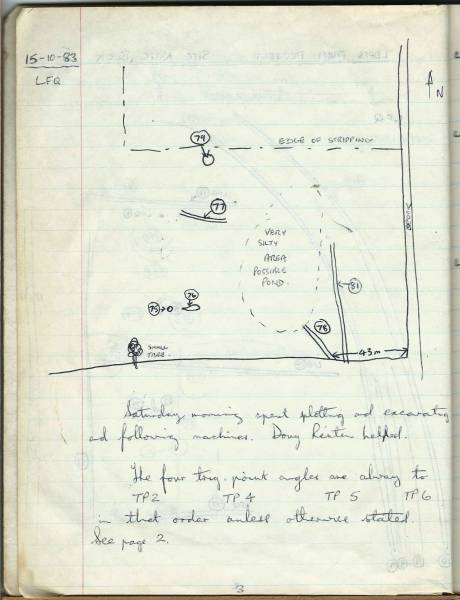 15-10-83
LFQ
N
79
EDGE OF STRIPPING
77
VERY
SILTY
AREA
POSSIBLE
POND.
81
76
75
78
SMALL
TREE.
43m
Saturday morning spent plotting and excavating
and following machines. Doug helped.
The four trig. point angles are always to
TP2 TP 4 TP 5 TP 6
in that order unless otherwise stated.
See page 2.
3